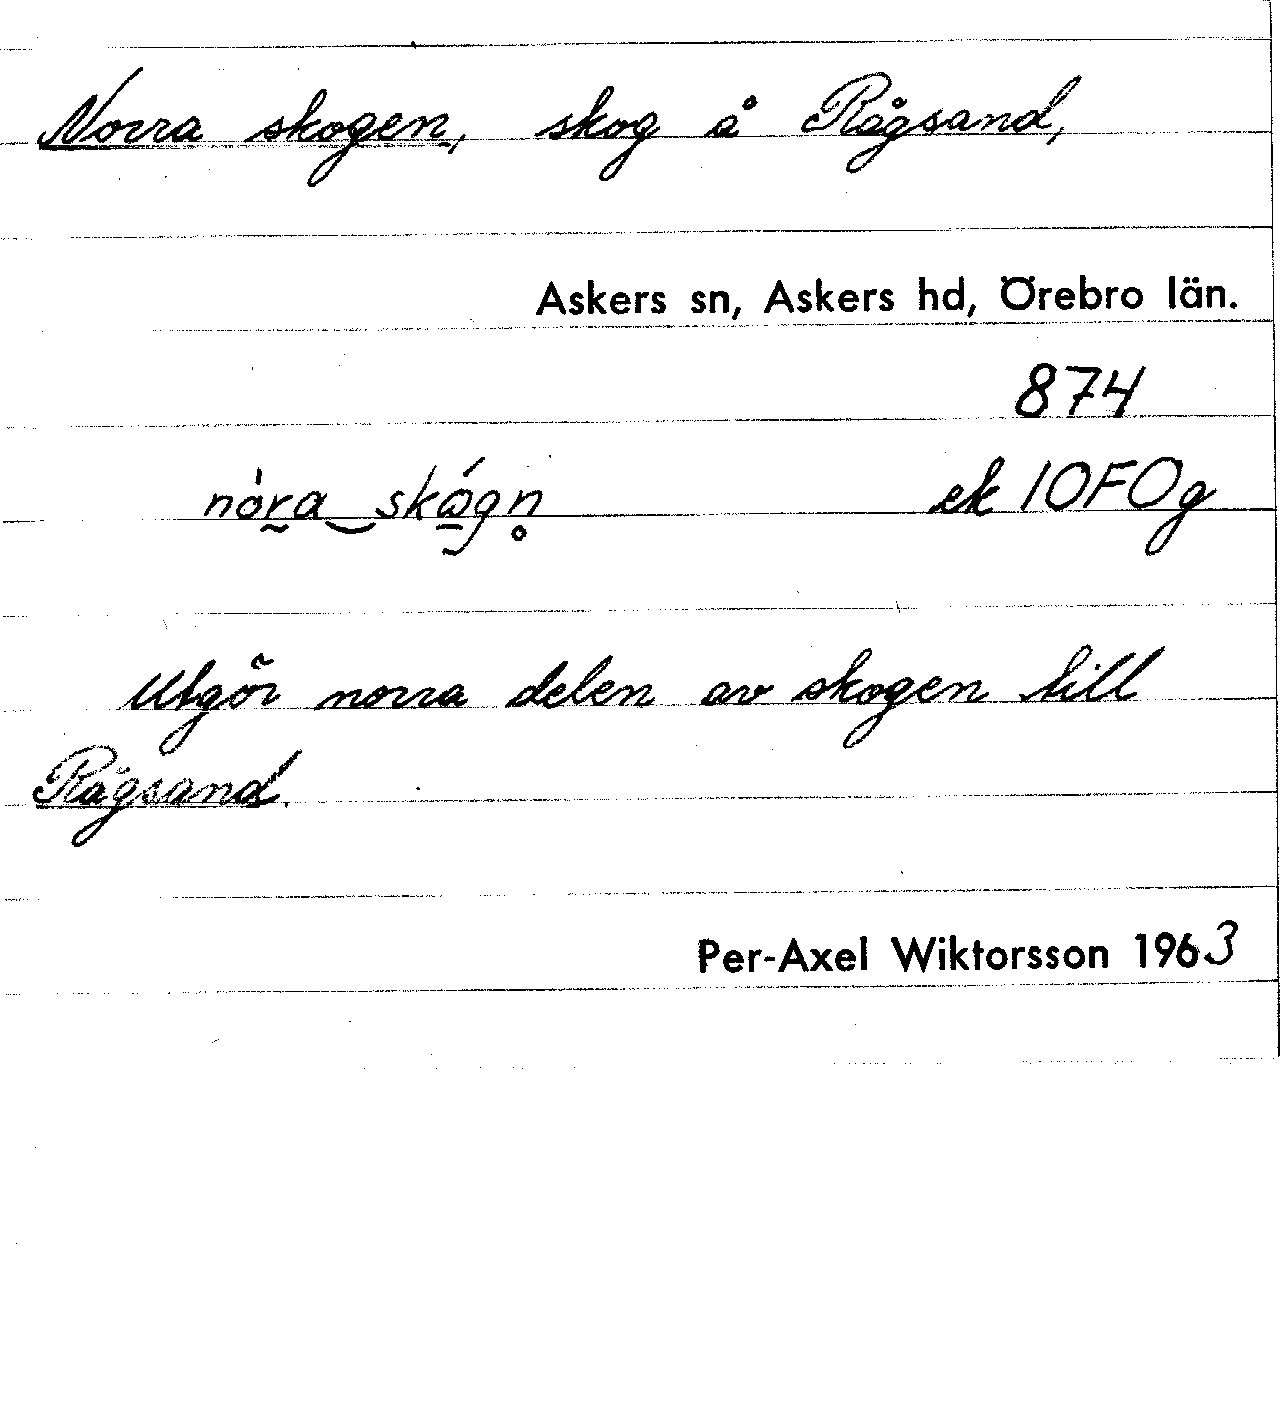 Norra skogen, skog å Rågsand,
Askers sn, Askers hd, Örebro län.
874
nòra‿skógn̥ ek 10F0g
Utgör norra delen av skogen till
Rågsand.
Per-Axel Wiktorsson 1963